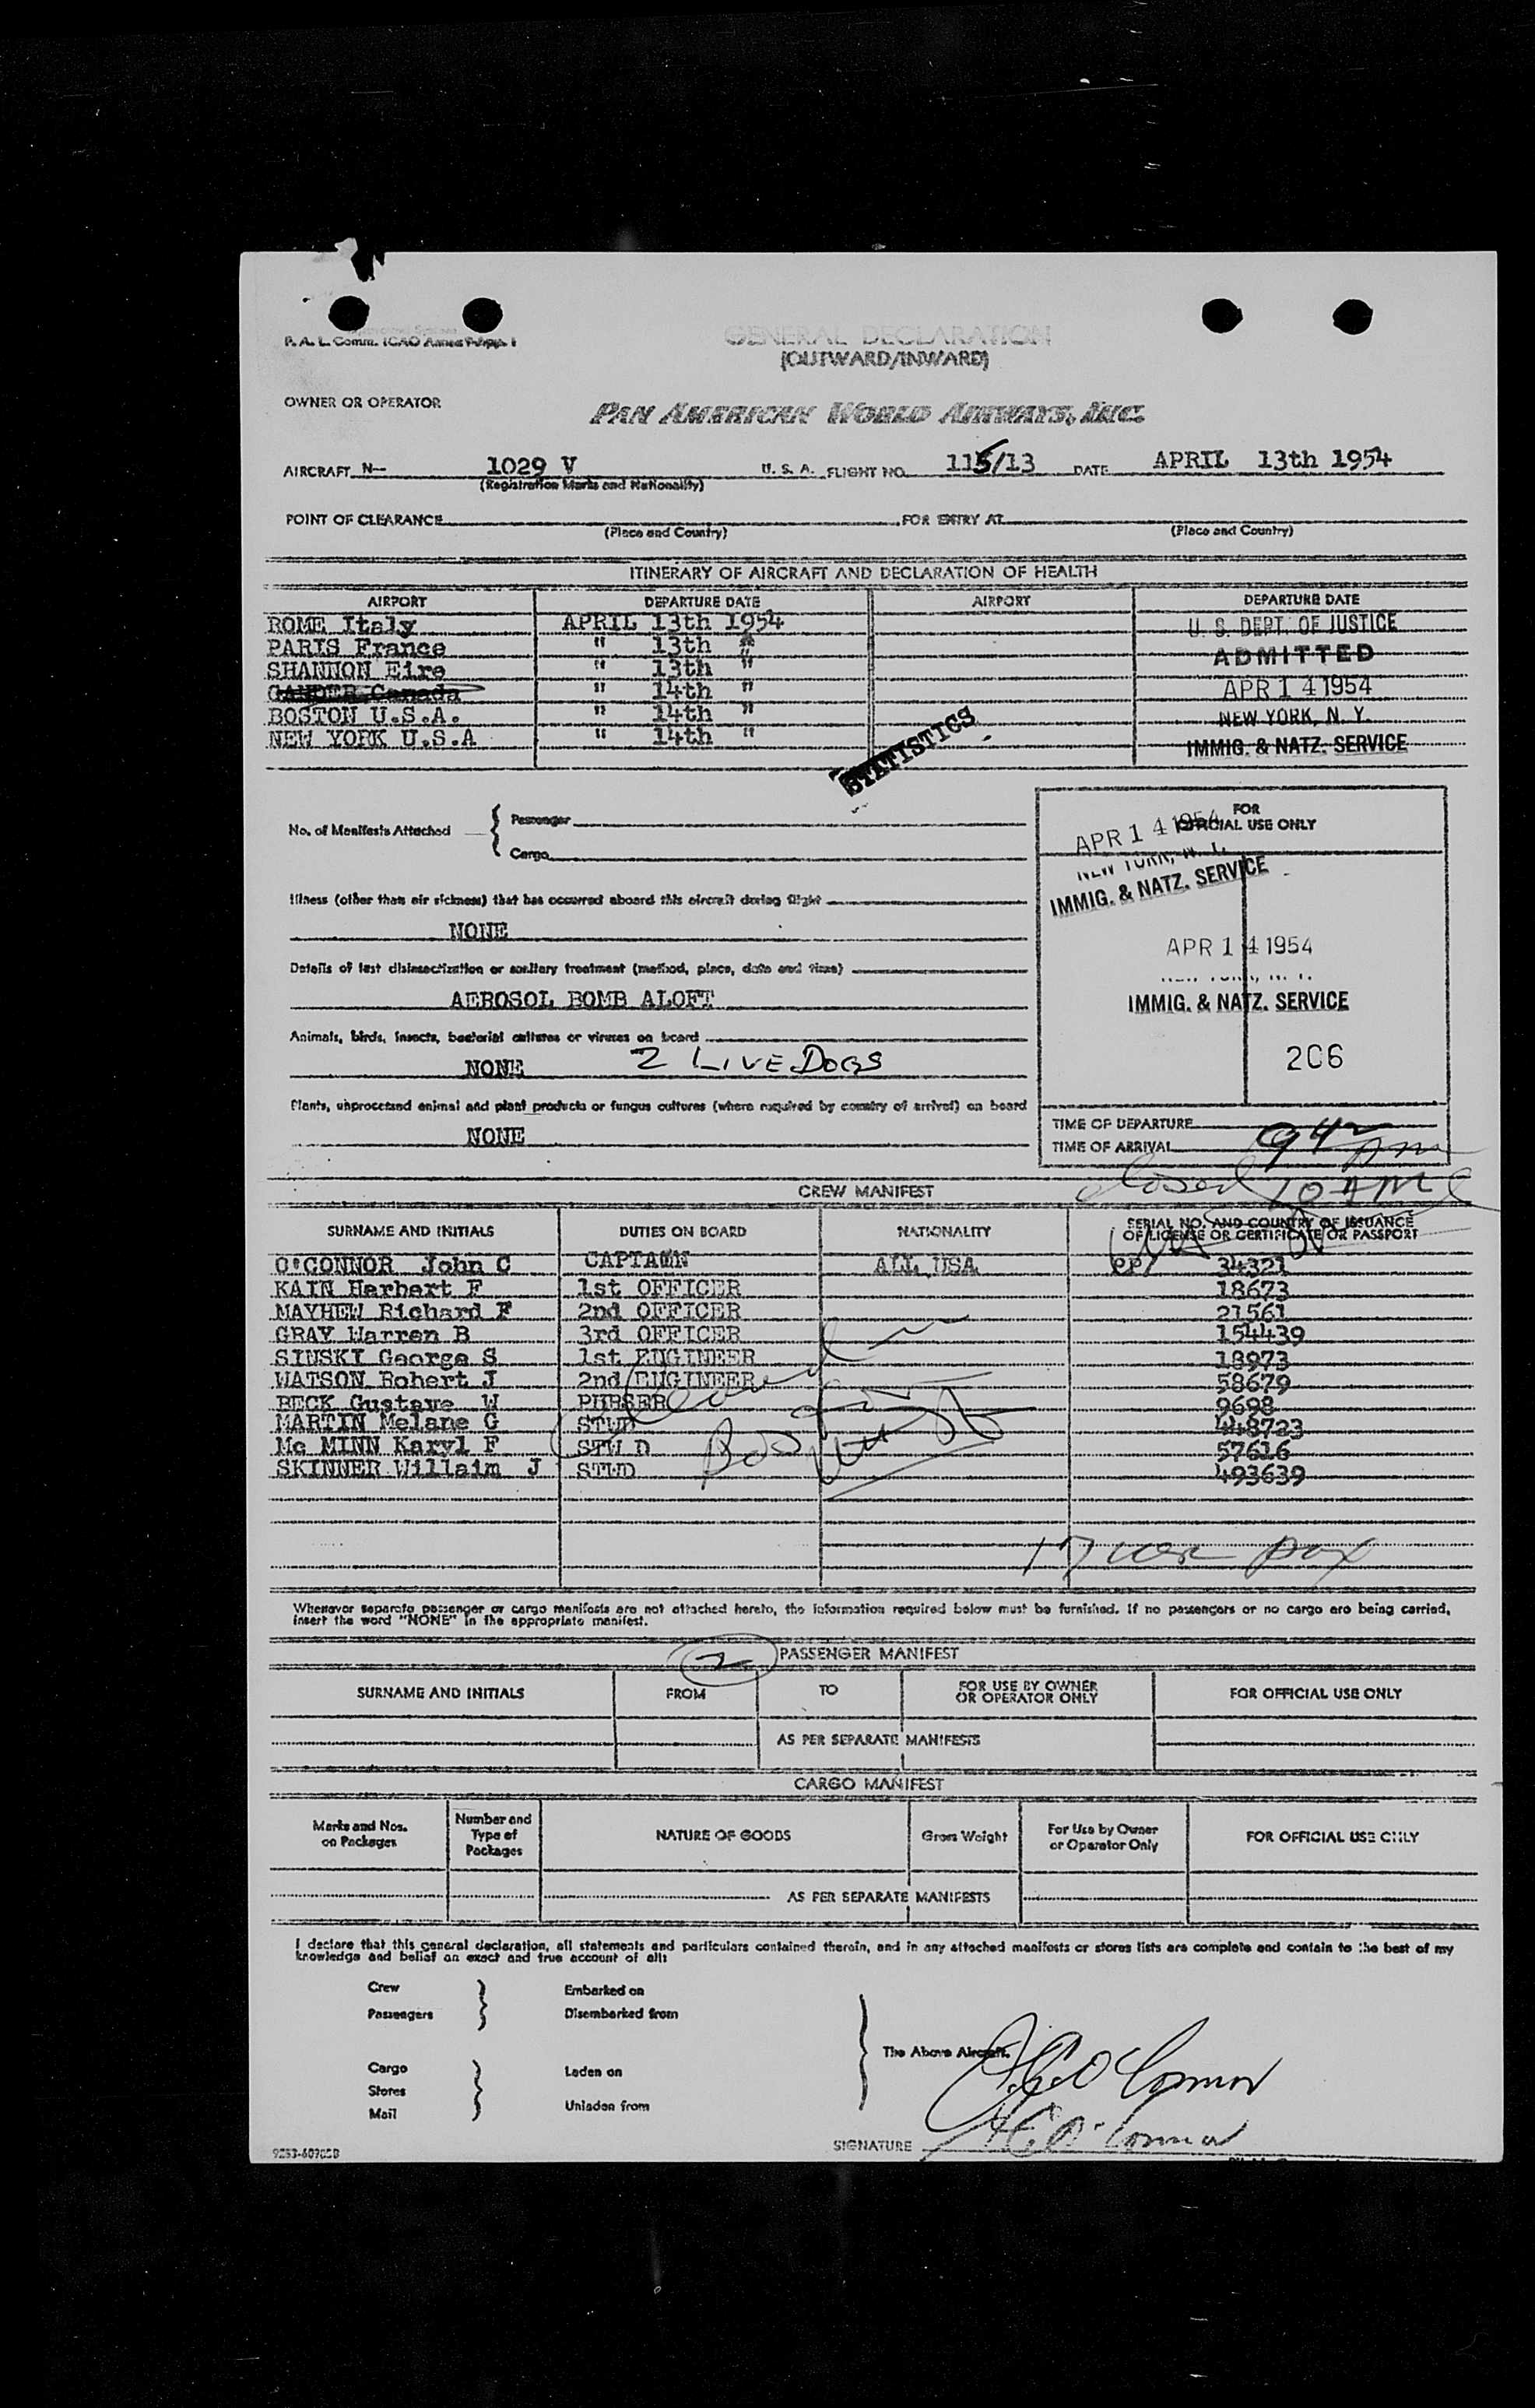 P. A. L. Comm. ICAO Annex 9-App. I
GENERAL DECLARATION
(OUTWARD/INWARD)
OWNER OR OPERATOR
PAN AMERICAN WORLD AIRWAYS, INC.
AIRCRAFT N- 1029 V U. S. A. FLIGHT NO. 115/13 DATE APRIL 13th 1954
(Registration Marks and Nationality)
POINT OF CLEARANCE FOR ENTRY AT
(Place and Country) (Place and Country)
ITINERARY OF AIRCRAFT AND DECLARATION OF HEALTH
AIRPORT DEPARTURE DATE AIRPORT DEPARTURE DATE
ROME Italy APRIL 13th 1954 U. S. DEPT. OF JUSTICE
PARIS France " 13th " ADMITTED
SHANNON Eire " 13th "
GANDER Canada " 14th " APR 14 1954
BOSTON U.S.A. " 14th " NEW YORK, N. Y.
NEW YORK U.S.A " 14th " IMMIG. & NATZ. SERVICE
STATISTICS
No. of Manifests Attached { Passenger
Cargo
FOR
OFFICIAL USE ONLY
APR 14 1954
NEW YORK, N. Y.
IMMIG. & NATZ. SERVICE
Illness (other than air sickness) that has occurred aboard this aircraft during flight
NONE
APR 14 1954
Details of last disinsectization or sanitary treatment (method, place, date and time)
AEROSOL BOMB ALOFT
IMMIG. & NATZ. SERVICE
Animals, birds, insects, bacterial cultures or viruses on board
NONE 2 LIVE DOGS
206
Plants, unprocessed animal and plant products or fungus cultures (where required by country of arrival) on board
NONE
TIME OF DEPARTURE
TIME OF ARRIVAL 942 Am
closed 10 AM
CREW MANIFEST
SURNAME AND INITIALS DUTIES ON BOARD NATIONALITY SERIAL NO. AND COUNTRY OF ISSUANCE
OF LICENSE OR CERTIFICATE OR PASSPORT
O'CONNOR John C CAPTAWN ALL USA PP/ 34321
KAIN Herbert F 1st OFFICER 18673
MAYHEW Richard F 2nd OFFICER 21561
GRAY Warren B 3rd OFFICER 154439
SINSKI George S 1st ENGINEER 18973
WATSON Robert J 2nd ENGINEER 58679
BECK Gustave W PURSER 9698
MARTIN Melane G STWD 448723
Mc MINN Karyl F STW D 57616
SKINNER Willaim J STWD 493639
Whenever separate passenger or cargo manifests are not attached hereto, the information required below must be furnished. If no passengers or no cargo are being carried,
insert the word "NONE" in the appropriate manifest.
2 PASSENGER MANIFEST
SURNAME AND INITIALS FROM TO FOR USE BY OWNER
OR OPERATOR ONLY FOR OFFICIAL USE ONLY
AS PER SEPARATE MANIFESTS
CARGO MANIFEST
Marks and Nos.
on Packages Number and
Type of
Packages NATURE OF GOODS Gross Weight For Use by Owner
or Operator Only FOR OFFICIAL USE ONLY
AS PER SEPARATE MANIFESTS
I declare that this general declaration, all statements and particulars contained therein, and in any attached manifests or stores lists are complete and contain to the best of my
knowledge and belief an exact and true account of all:
Crew Embarked on
Passengers Disembarked from
The Above Aircraft.
Cargo Laden on
Stores
Mail Unladen from
J.C. O'Connor
SIGNATURE J C. O'Connor